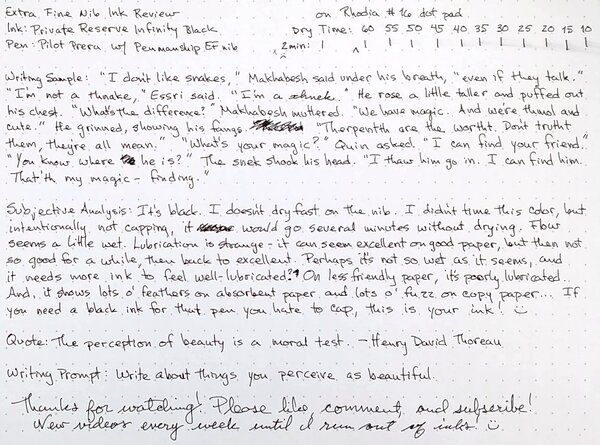 Extra Fine Nib Ink Review on Rhodia #16 dot pad
Ink: Private Reserve Infinity Black Dry Time: 60 55 50 45 40 35 30 25 20 15 10
Pen: Pilot Prera w/ Penmanship EF nib 2min:
Writing Sample: "I don't like snakes," Makhabesh said under his breath, "even if they talk."
"I'm not a thnake," Essri said. "I'm a shnek." He rose a little taller and puffed out
his chest. "What's the difference?" Makhabesh muttered. "We have magic. And we're thmol and
cute." He grinned, showing his fangs. "Therpentth are the wortht. Don't trutht
them, they're all mean." "What's your magic?" Quin asked. "I can find your friend."
"You know where he is?" The snek shook his head. "I thaw him go in. I can find him.
That'th my magic - finding."
Subjective Analysis: It's black. I doesn't dry fast on the nib. I didn't time this color, but
intentionally not capping, it would go several minutes without drying. Flow
seems a little wet. Lubrication is strange - it can seem excellent on good paper, but then not
so good for a while, then back to excellent. Perhaps it's not so wet as it seems, and
it needs more ink to feel well-lubricated? On less friendly paper, it's poorly lubricated.
And, it shows lots o' feathers on absorbent paper and lots o' fuzz on copy paper... If
you need a black ink for that pen you hate to cap, this is your ink!
Quote: The perception of beauty is a moral test. - Henry David Thoreau
Writing Prompt: Write about things you perceive as beautiful.
Thanks for watching! Please like, comment, and subscribe!
New videos every week until I run out of inks!